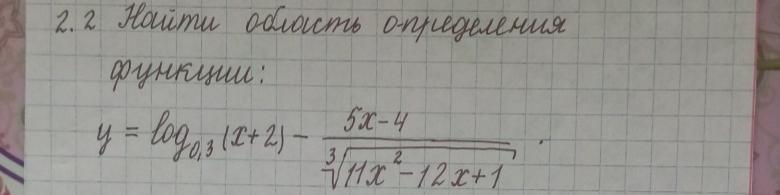 2.2 Найти область определения
функции:
y = log₀,₃(x+2) - (5x-4)/∛(11x²-12x+1).